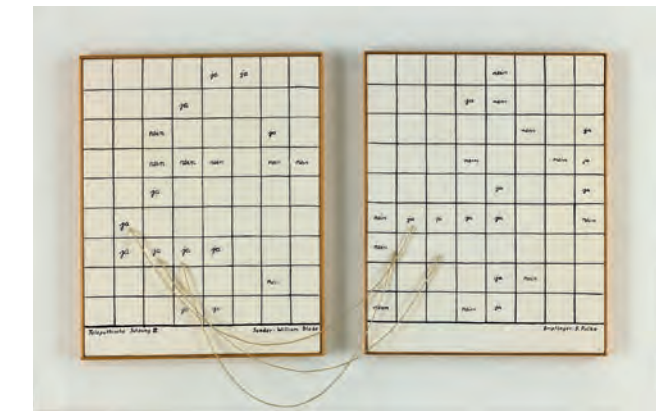 ja ja
ja
nein ja
nein nein nein nein nein
ja
ja
ja ja ja ja
nein
ja ja
Telepathische Sitzung II Sender: William Blake
nein
ja nein
nein ja
nein nein ja
ja ja
nein ja ja ja ja nein
nein
ja nein
nein nein ja
Empfänger: S. Polke